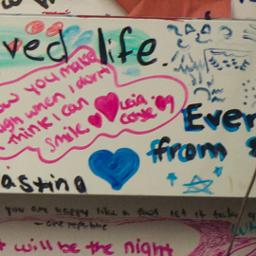 ved life.
ow you make
ugh when I don't
think I can
smile
love
Ever
from
asting
you are happy like a fool let it take
- one republic
t will be the night